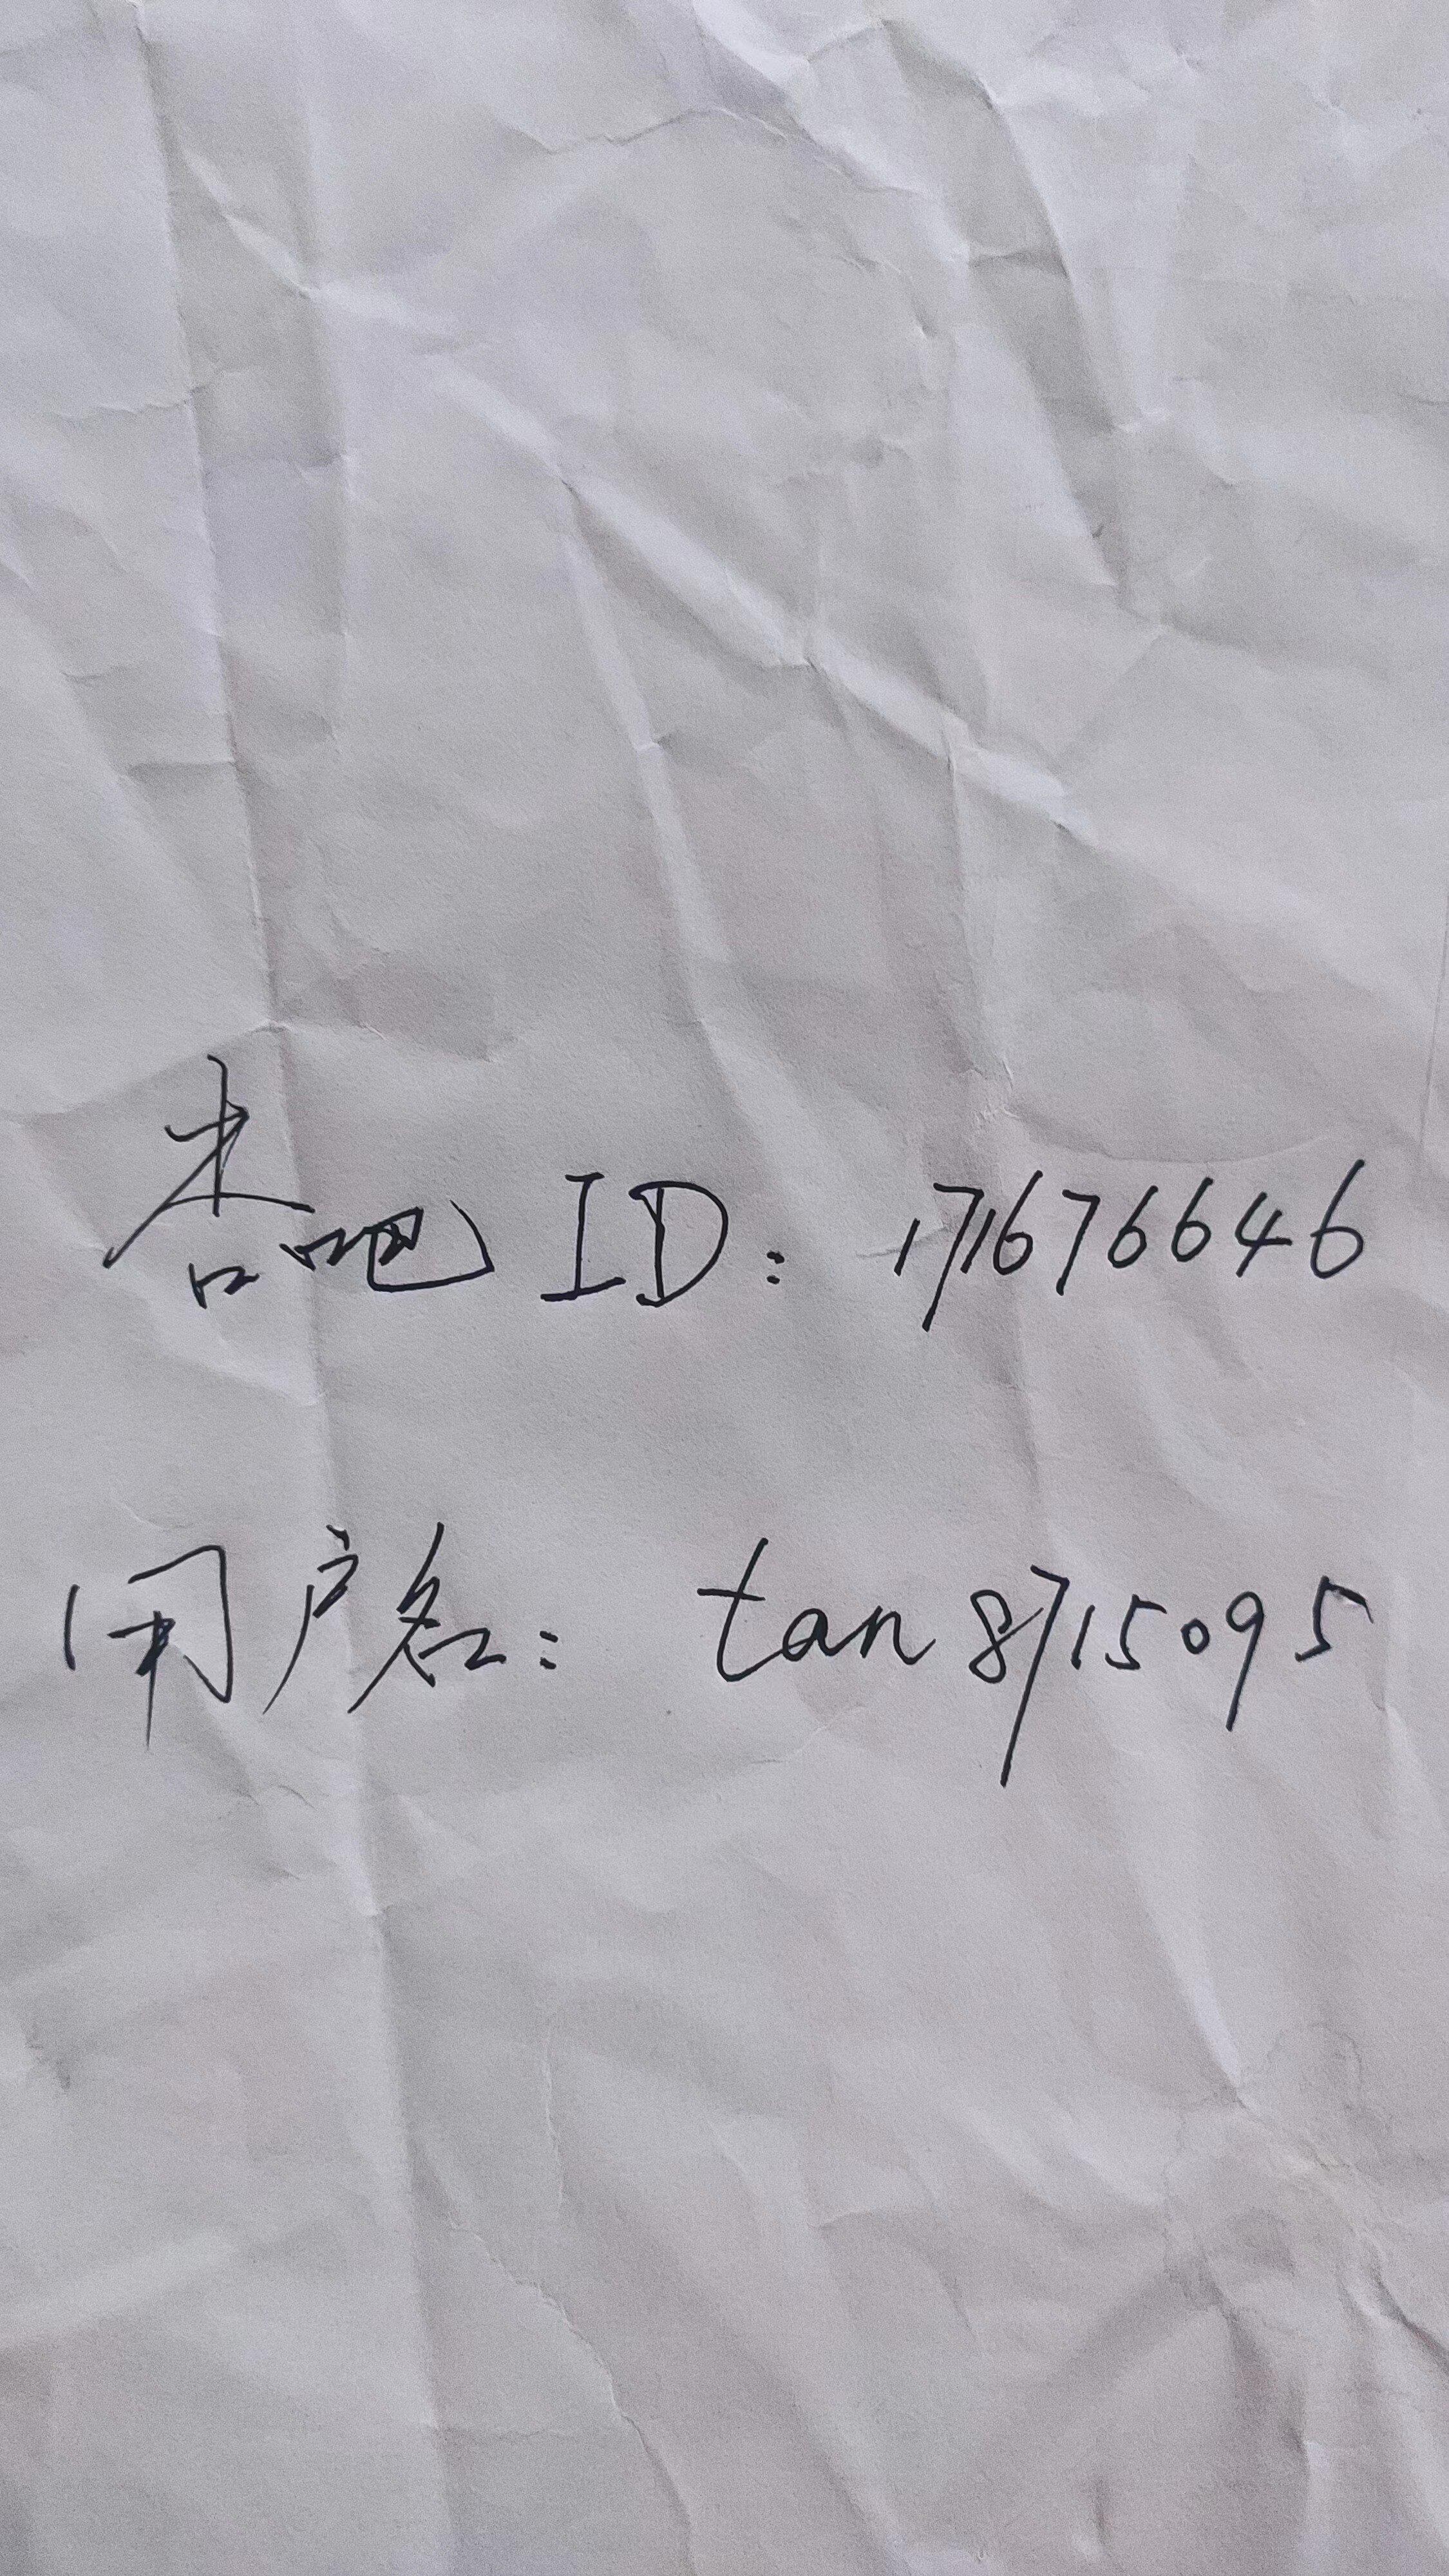 杏吧ID：171676646
用户名：tan8715095